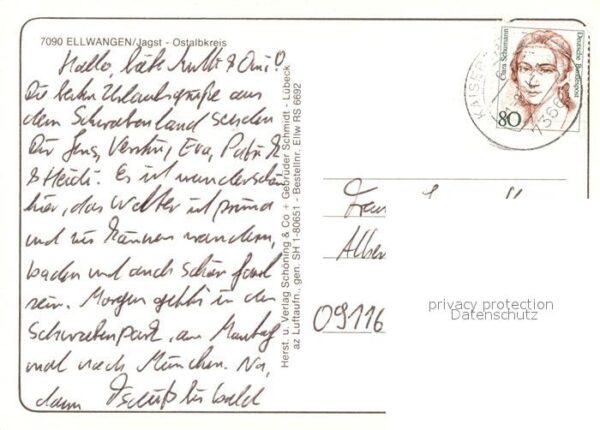 7090 ELLWANGEN/Jagst - Ostalbkreis
Hallo, liebe Mutti & Omi!
Die Urlaubsgrüße aus
dem Schwabenland senden
Dir Jens, Eva,
& Heidi. Es ist wunderschön
hier, das Wetter ist prima
und wir können wandern,
baden und auch schön faul
sein. Morgen geht's in den
Schwabenpark, am Montag
mal nach München. Na,
dann Tschüß bis bald
Herst. u. Verlag Schöning & Co + Gebrüder Schmidt - Lübeck
az Luftaufn., gen. SH 1-80651 - Bestellnr. Ellw RS 6692
Clara Schumann
Deutsche Bundespost
80
Albe
09116
privacy protection
Datenschutz